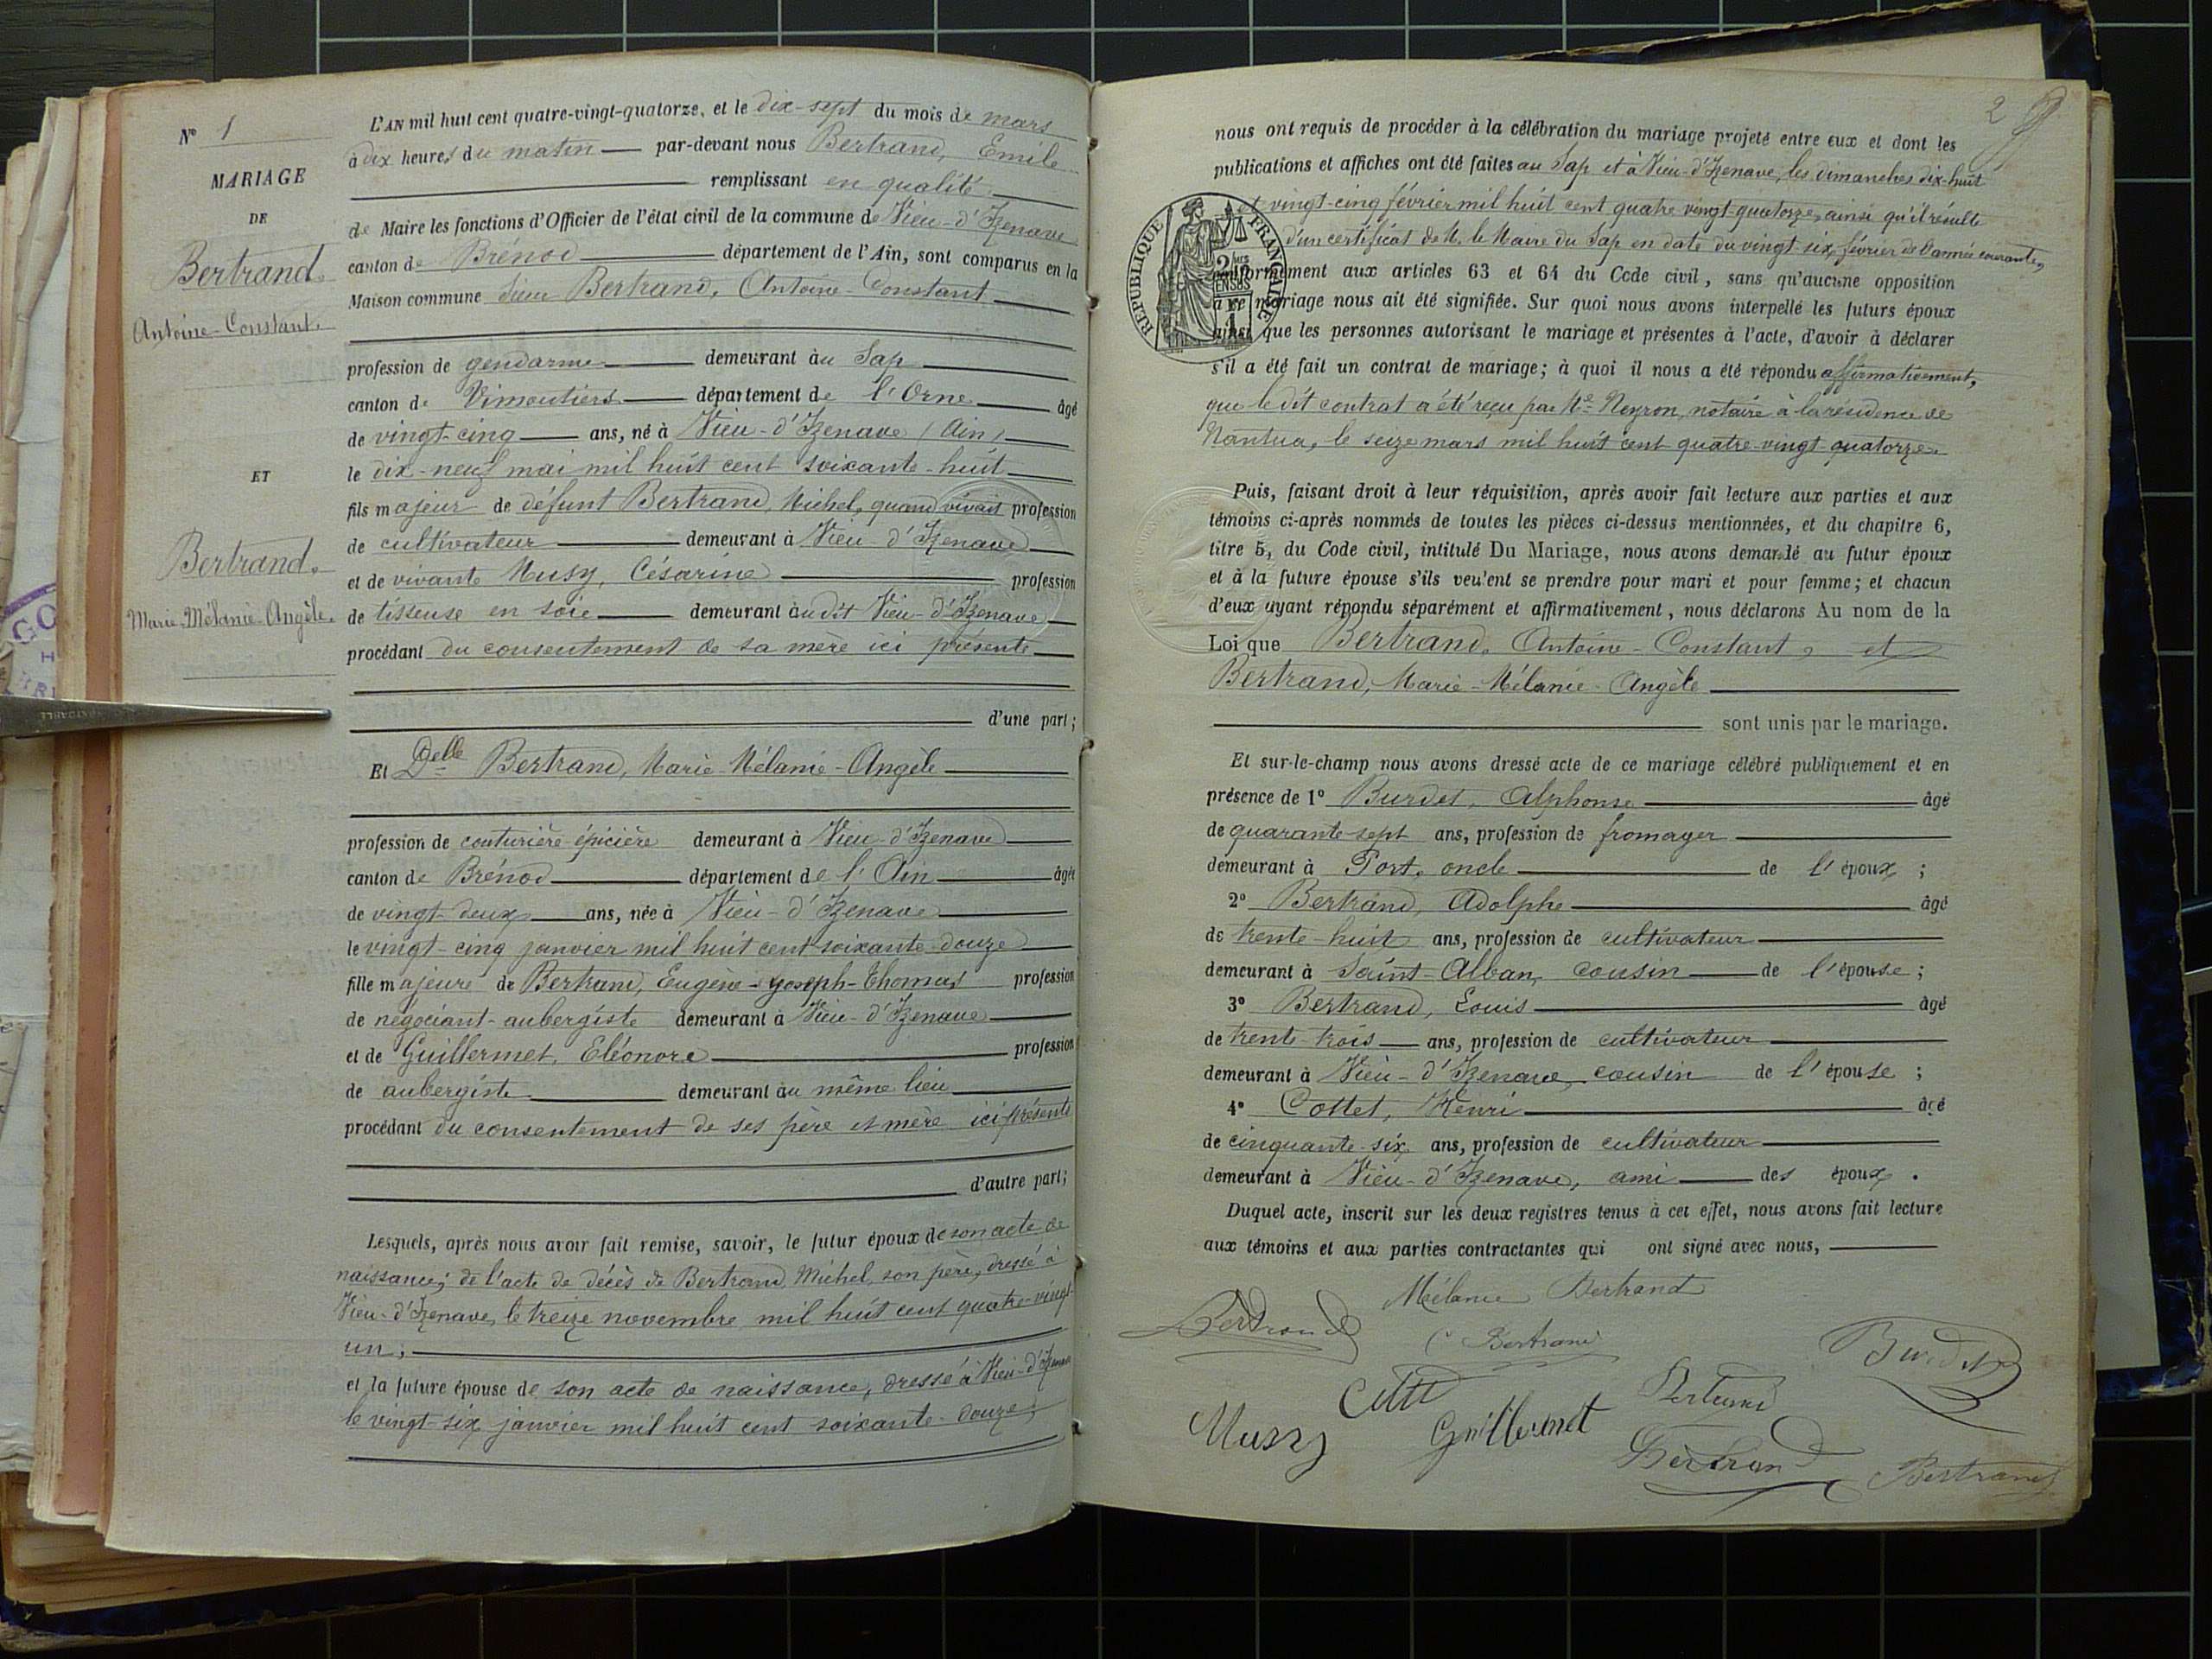 N° 1
MARIAGE
DE
Bertrand
Antoine-Constant.
ET
Bertrand.
Marie-Mélanie-Angèle.
L'AN mil huit cent quatre-vingt-quatorze, et le dix-sept du mois de mars
à dix heures du matin par-devant nous Bertrand, Emile
remplissant en qualité
de Maire les fonctions d'Officier de l'état civil de la commune de Vieu-d'Izenave
canton de Brénod département de l'Ain, sont comparus en la
Maison commune Sieur Bertrand, Antoine-Constant
profession de gendarme demeurant au Sap
canton de Vimoutiers département de l'Orne âgé
de vingt-cinq ans, né à Vieu-d'Izenave (Ain)
le dix-neuf mai mil huit cent soixante-huit
fils majeur de défunt Bertrand, Michel, quand vivait profession
de cultivateur demeurant à Vieu-d'Izenave
et de vivante Musy, Césarine profession
de tisseuse en soie demeurant audit Vieu-d'Izenave
procédant du consentement de sa mère ici présente
d'une part;
Et Delle Bertrand, Marie-Mélanie-Angèle
profession de couturière-épicière demeurant à Vieu-d'Izenave
canton de Brénod département de l'Ain âgée
de vingt-deux ans, née à Vieu-d'Izenave
le vingt-cinq janvier mil huit cent soixante-douze
fille majeure de Bertrand, Eugène-Joseph-Thomas profession
de négociant-aubergiste demeurant à Vieu-d'Izenave
et de Guillermet, Eléonore profession
de aubergiste demeurant au même lieu
procédant du consentement de ses père et mère ici présents
d'autre part;
Lesquels, après nous avoir fait remise, savoir, le futur époux de son acte de
naissance; de l'acte de décès de Bertrand Michel, son père, dressé à
Vieu-d'Izenave, le treize novembre mil huit cent quatre-vingt-
un;
et la future épouse de son acte de naissance, dressé à Vieu-d'Izenave
le vingt-six janvier mil huit cent soixante-douze;
2
nous ont requis de procéder à la célébration du mariage projeté entre eux et dont les
publications et affiches ont été faites au Sap et à Vieu-d'Izenave, les dimanches dix-huit
et vingt-cinq février mil huit cent quatre vingt-quatorze, ainsi qu'il résulte
d'un certificat de M. le Maire du Sap en date du vingt-six février de l'année courante,
REPUBLIQUE FRANCAISE
conformément aux articles 63 et 64 du Code civil, sans qu'aucune opposition
à ce mariage nous ait été signifiée. Sur quoi nous avons interpellé les futurs époux
ainsi que les personnes autorisant le mariage et présentes à l'acte, d'avoir à déclarer
s'il a été fait un contrat de mariage; à quoi il nous a été répondu affirmativement,
que le dit contrat a été reçu par Me Neyron, notaire à la résidence de
Nantua, le seize mars mil huit cent quatre-vingt quatorze.
Puis, faisant droit à leur réquisition, après avoir fait lecture aux parties et aux
témoins ci-après nommés de toutes les pièces ci-dessus mentionnées, et du chapitre 6,
titre 5, du Code civil, intitulé Du Mariage, nous avons demandé au futur époux
et à la future épouse s'ils veulent se prendre pour mari et pour femme; et chacun
d'eux ayant répondu séparément et affirmativement, nous déclarons Au nom de la
Loi que Bertrand, Antoine-Constant, et
Bertrand, Marie-Mélanie-Angèle
sont unis par le mariage.
Et sur-le-champ nous avons dressé acte de ce mariage célébré publiquement et en
présence de 1° Burdet, Alphonse âgé
de quarante-sept ans, profession de fromager
demeurant à Port, oncle de l'époux;
2° Bertrand, Adolphe âgé
de trente-huit ans, profession de cultivateur
demeurant à Saint-Alban, cousin de l'épouse;
3° Bertrand, Louis âgé
de trente-trois ans, profession de cultivateur
demeurant à Vieu-d'Izenave, cousin de l'épouse;
4° Cottet, Henri âgé
de cinquante-six ans, profession de cultivateur
demeurant à Vieu-d'Izenave, ami des époux.
Duquel acte, inscrit sur les deux registres tenus à cet effet, nous avons fait lecture
aux témoins et aux parties contractantes qui ont signé avec nous,
Mélanie Bertrand
Bertrand C Bertrand Burdet
Bertrand
Mussy Guillermet
Bertrand Bertrand